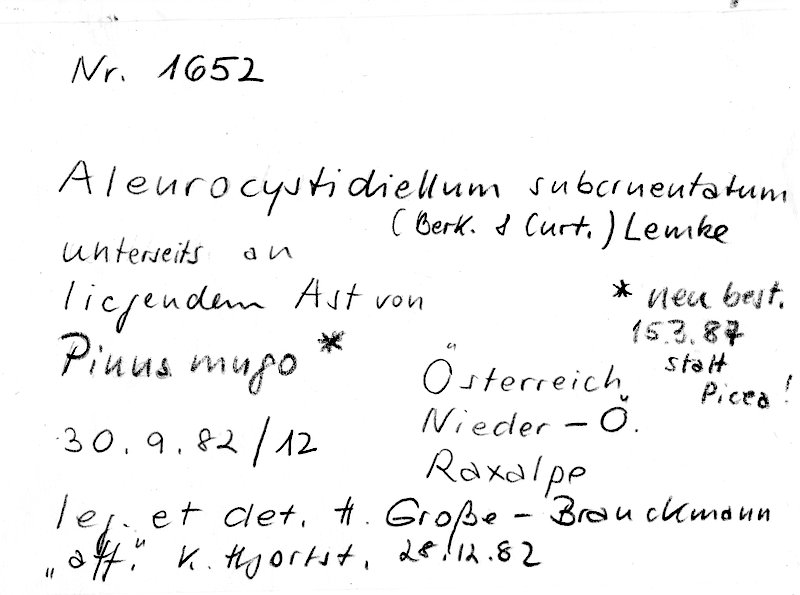 Nr. 1652
Aleurocystidiellum subcruentatum
(Berk. & Curt.) Lemke
unterseits an
liegendem Ast von
Pinus mugo *
* neu best.
15.3.87
statt
Picea!
Österreich
Nieder-Ö.
Raxalpe
30.9.82/12
leg. et det. H. Große-Brauckmann
"aff." K. Hjortst. 28.12.82